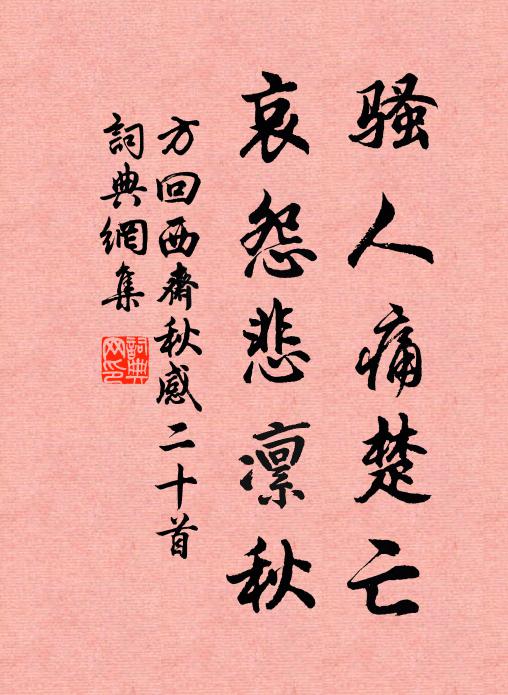 騷人痛楚亡
哀怨悲凛秋
方回西齋秋感二十首
詞典網集
詞典網印